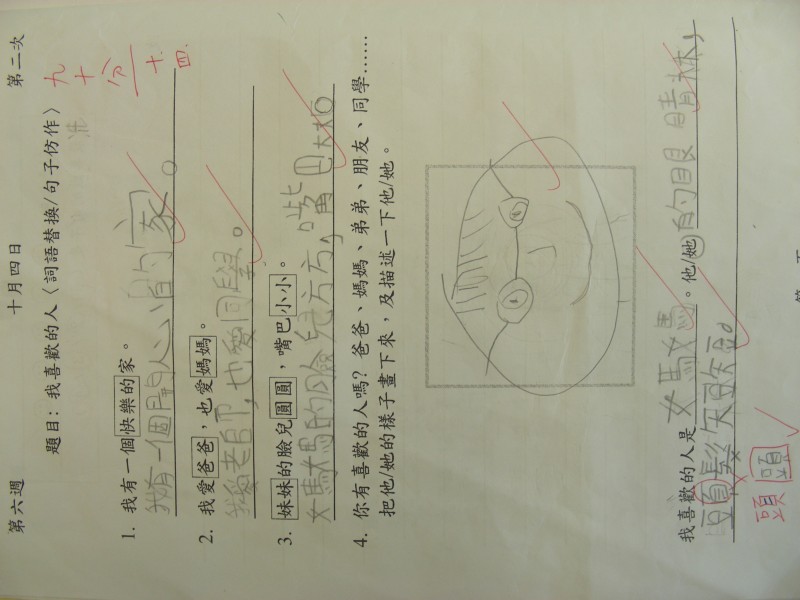 第六週 十月四日 第二次
題目：我喜歡的人〈詞語替換/句子仿作〉
九十分
十.四.
1. 我有一個快樂的家。
我有一個開心的家。
2. 我愛爸爸，也愛媽媽。
我愛老師，也愛同學。
3. 妹妹的臉兒圓圓，嘴巴小小。
媽媽的臉兒方方，嘴巴大大。
4. 你有喜歡的人嗎？爸爸、媽媽、弟弟、朋友、同學……
把他/她的樣子畫下來，及描述一下他/她。
我喜歡的人是媽媽。他/她的眼睛
頭髮短短。
頭 頭